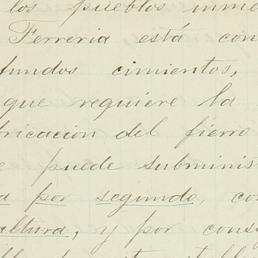 los pueblos inmo
Ferreria está con
fundos cimientos,
que requiere la
bricacion del fierro
e puede subminis
a por segundo, co
altura, y por cons